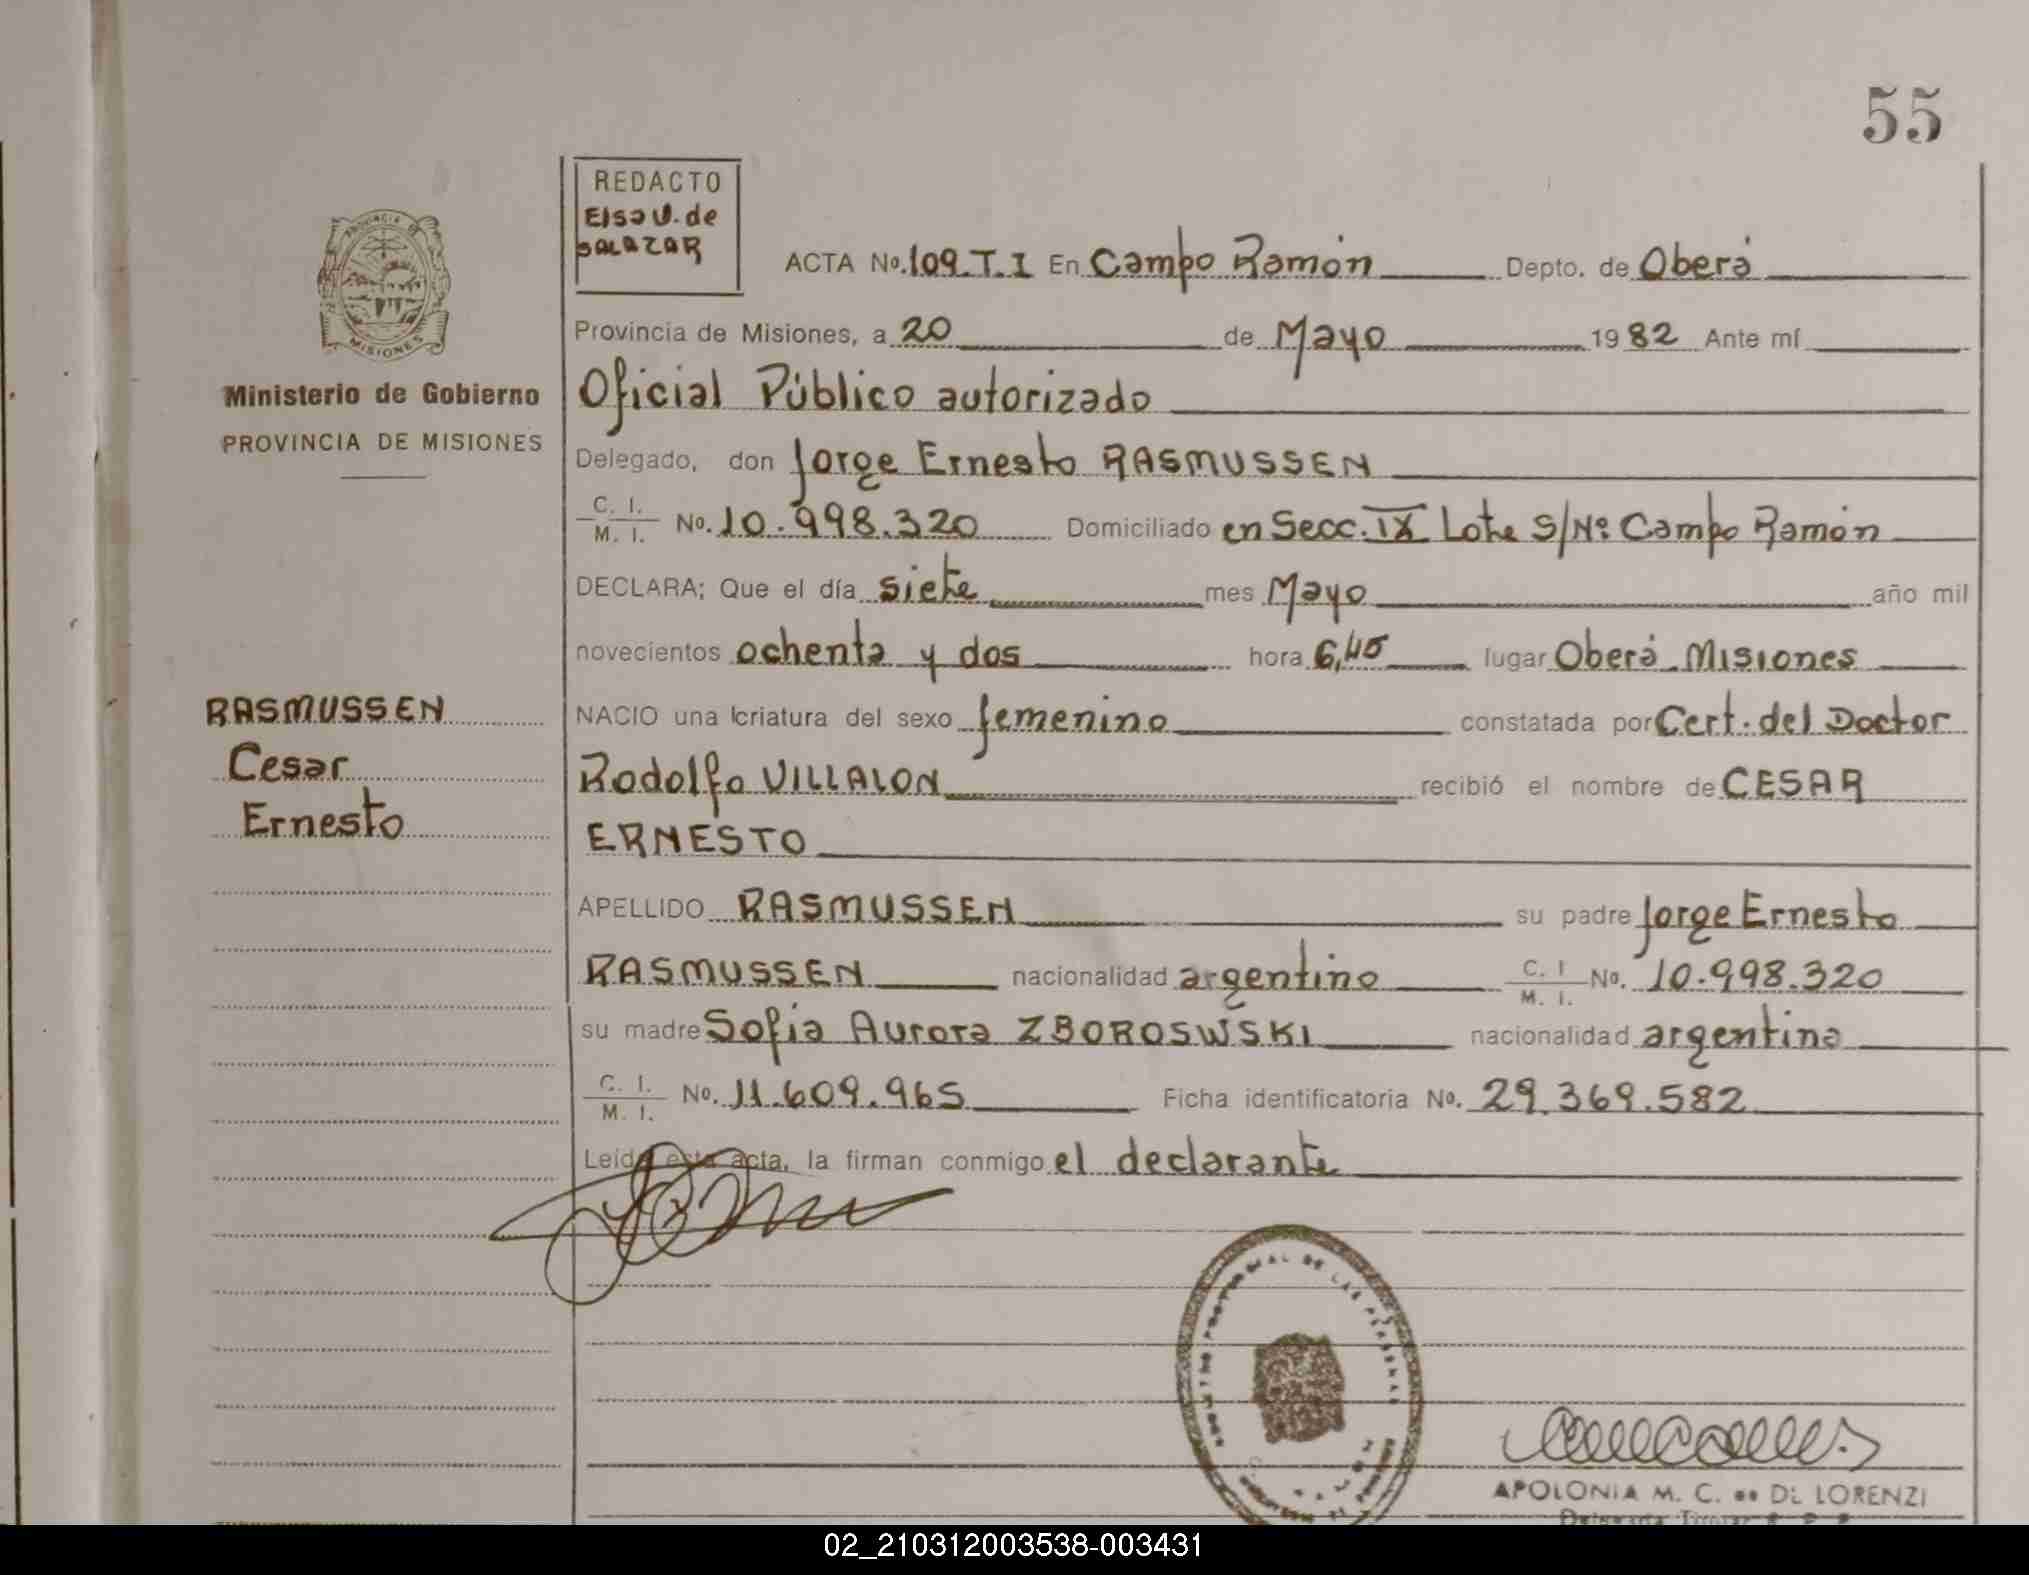 55
REDACTO
Elsa V. de
SALAZAR
ACTA No. 109. T. I En Campo Ramón Depto. de Oberá
Provincia de Misiones, a 20 de Mayo 1982 Ante mí
Oficial Público autorizado
Delegado, don Jorge Ernesto RASMUSSEN
C. I.
M. I. No. 10.998.320 Domiciliado en Secc. IX Lote S/Nº Campo Ramón
DECLARA; Que el día siete mes Mayo año mil
novecientos ochenta y dos hora 6,45 lugar Oberá Misiones
NACIO una criatura del sexo femenino constatada por Cert. del Doctor
Rodolfo VILLALON recibió el nombre de CESAR
ERNESTO
APELLIDO RASMUSSEN su padre Jorge Ernesto
RASMUSSEN nacionalidad argentino C. I
M. I. No. 10.998.320
su madre Sofia Aurora ZBOROSWSKI nacionalidad argentina
C. I.
M. I. No. 11.609.965 Ficha identificatoria No. 29.369.582
Leida esta acta, la firman conmigo el declarante
PROVINCIA DE
MISIONES
Ministerio de Gobierno
PROVINCIA DE MISIONES
RASMUSSEN
Cesar
Ernesto
DE LAS PERSONAS
APOLONIA M. C. DE LORENZI
02_210312003538-003431